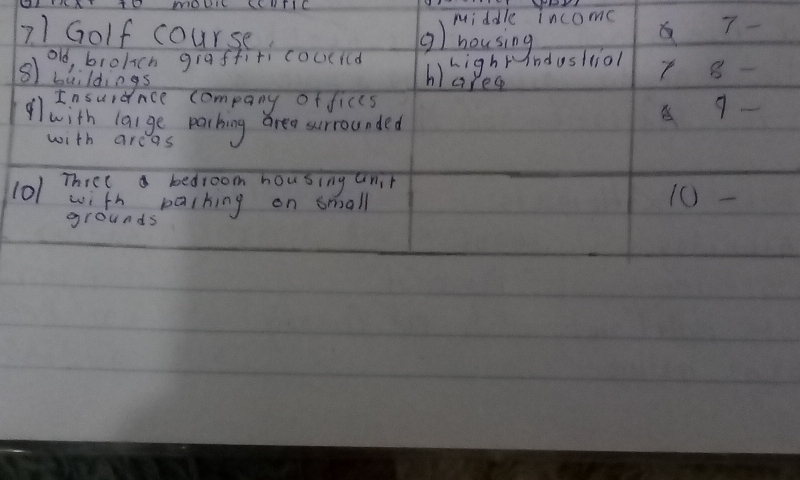 6) next to movie centre
7) Golf course.
8) Old, broken graffiti covered
buildings
9) Insurance company offices
with large parking area surrounded
with areas
10) Three bedroom housing unit
with parking on small
grounds
middle income
g) housing
Light industrial
h) area
7 -
7 8 -
9 -
10 -